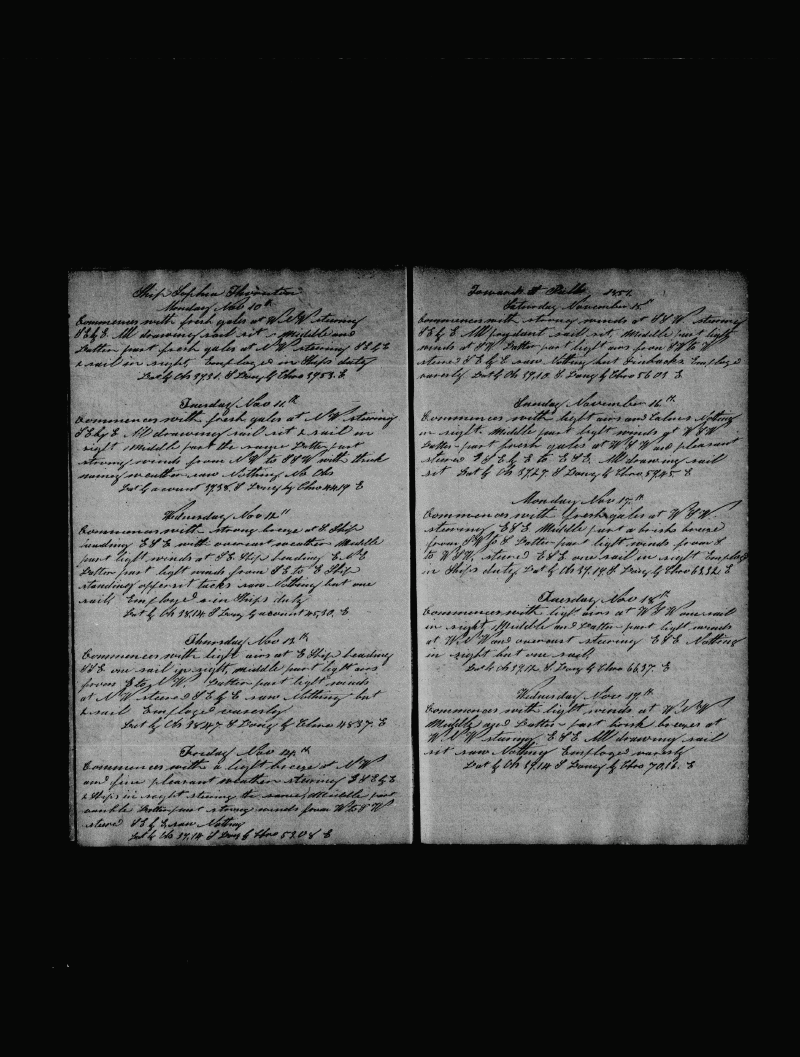 Ship Sophia Thornton
Monday Nov 10th
Commences with fresh gales at W.N.W stering
S E by E All drawing sail set Middle and
Latter part fresh gales at N W stering S E by E
a sail in sight Employed in Ships duty
Lat by Obs 37.31. S Long by Chro 39.53. E
Tuesday Nov 11th
Commences with fresh gales at N.W stering
S E by E All drawing sail set a sail in
sight Middle part the same Latter part
strong winds from N W to S S W with thick
weather saw Nothing No Obs
Lat by account 37.38. S Long by Chro 44.19 E
Wednesday Nov 12th
Commences with strong breeze at S Ship
heading E S E with overcast weather Middle
part light winds at S E Ship heading E N E
Latter part light winds from S E to E Ship
standing offerent tacks saw Nothing but one
sail Employed in Ships duty
Lat by Ob 38.14. S Long by account 45.30. E
Thursday Nov 13th
Commences with light airs at E Ship heading
S S E one sail in sight middle part light airs
from E to N W Latter part light winds
at N W stered S E by E saw Nothing but
a sail Employed vaersly
Lat by Obs 38.47. S Long by Chro 48.37. E
Friday Nov 14th
Commences with a light breeze at N W
and fine pleasant weather stering
2 Ships in sight stering the same Middle part
Latter part strong winds from W to S W
stered S E by E saw Nothing
Lat by Obs 39.14 S Long by Chro 53.08 E
Towards St Pauls 1851.
Saturday November 15th
Commences with strong winds at S S W stering
S E by E All drawing sail set, Middle part light
winds at S W Latter part light airs from S W to
stered S E by E saw Nothing but Finbacks Employed
vaersly Lat by Ob 39.10. S Long by Chro 56.03 E
Sunday November 16th
Commences with light airs and Calms Nothing
in sight Middle part light winds at W S W
Latter part fresh gales at W S W and pleasant
stered S E by E to E S E. All drawing sail
set Lat by Ob 39.27. S Long by Chro 59.45 E
Monday Nov 17th
Commences with fresh gales at W S W
stering E S E Middle part a brisk breeze
from S W to S Latter part light winds from S
to W S W, stered E S E one sail in sight Employed
in Ships duty Lat by Ob 39.19. S Long by Chro 63.32 E
Tuesday Nov 18th
Commences with light airs at W S W one sail
in sight Middle and Latter part light winds
at W.N.W and overcast stering E S E Nothing
in sight but one sail
Lat by Ob 39.12 S Long by Chro 66.37. E
Wednesday Nov 19th
Commences with light winds at W.N.W
Middle and Latter part brisk breezes at
W.N.W stering E S E All drawing sail
set saw Nothing Employed vaersly
Lat by Ob 39.14 S Long by Chro 70.16. E